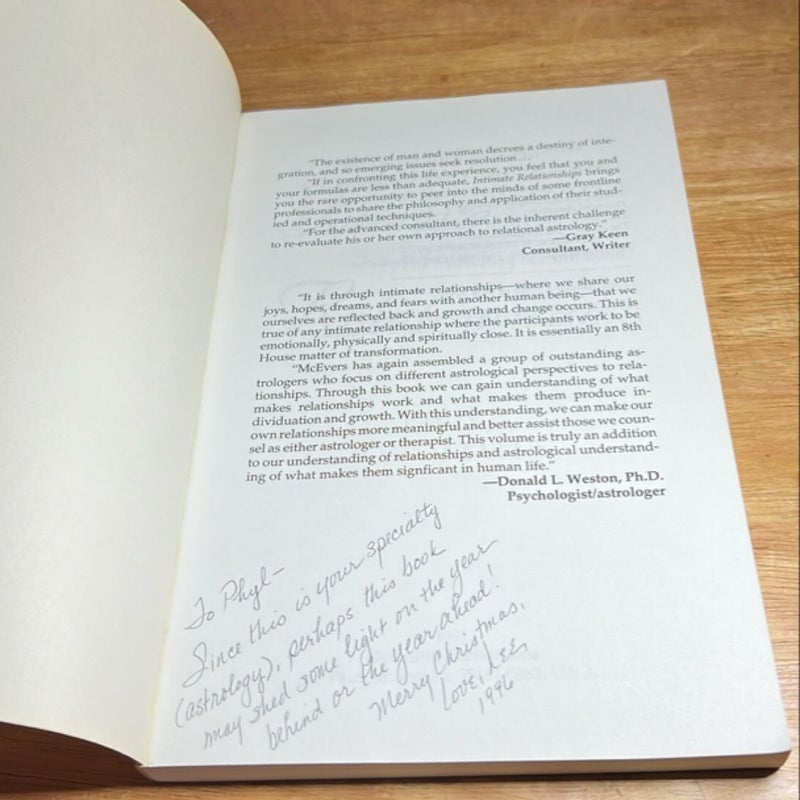 "The existence of man and woman decrees a destiny of inte-
gration, and so emerging issues seek resolution . . .
"If in confronting this life experience, you feel that you and
your formulas are less than adequate, Intimate Relationships brings
you the rare opportunity to peer into the minds of some frontline
professionals to share the philosophy and application of their stud-
ied and operational techniques.
"For the advanced consultant, there is the inherent challenge
to re-evaluate his or her own approach to relational astrology."
—Gray Keen
Consultant, Writer
"It is through intimate relationships—where we share our
joys, hopes, dreams, and fears with another human being—that we
ourselves are reflected back and growth and change occurs. This is
true of any intimate relationship where the participants work to be
emotionally, physically and spiritually close. It is essentially an 8th
House matter of transformation.
"McEvers has again assembled a group of outstanding as-
trologers who focus on different astrological perspectives to rela-
tionships. Through this book we can gain understanding of what
makes relationships work and what makes them produce in-
dividuation and growth. With this understanding, we can make our
own relationships more meaningful and better assist those we coun-
sel as either astrologer or therapist. This volume is truly an addition
to our understanding of relationships and astrological understand-
ing of what makes them signficant in human life."
—Donald L. Weston, Ph.D.
Psychologist/astrologer
To Phyl-
Since this is your specialty
(astrology), perhaps this book
may shed some light on the year
behind or the year ahead!
Merry Christmas,
Love, Lee,
1996